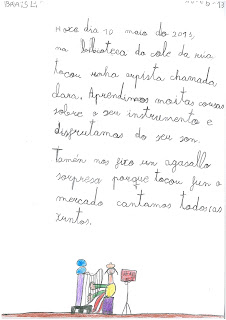 BRAIS L.
Hoxe día 10 maio do 2013,
na biblioteca do cole da miña
tocou unha arpista chamada
clara. Aprendimos moitas cousas
sobre o seu instrumento e
disfrutamos do seu son.
tamén nos fixo un agasallo
sorpresa porque tocou fun o
mercado cantamos todos/as
xuntos.